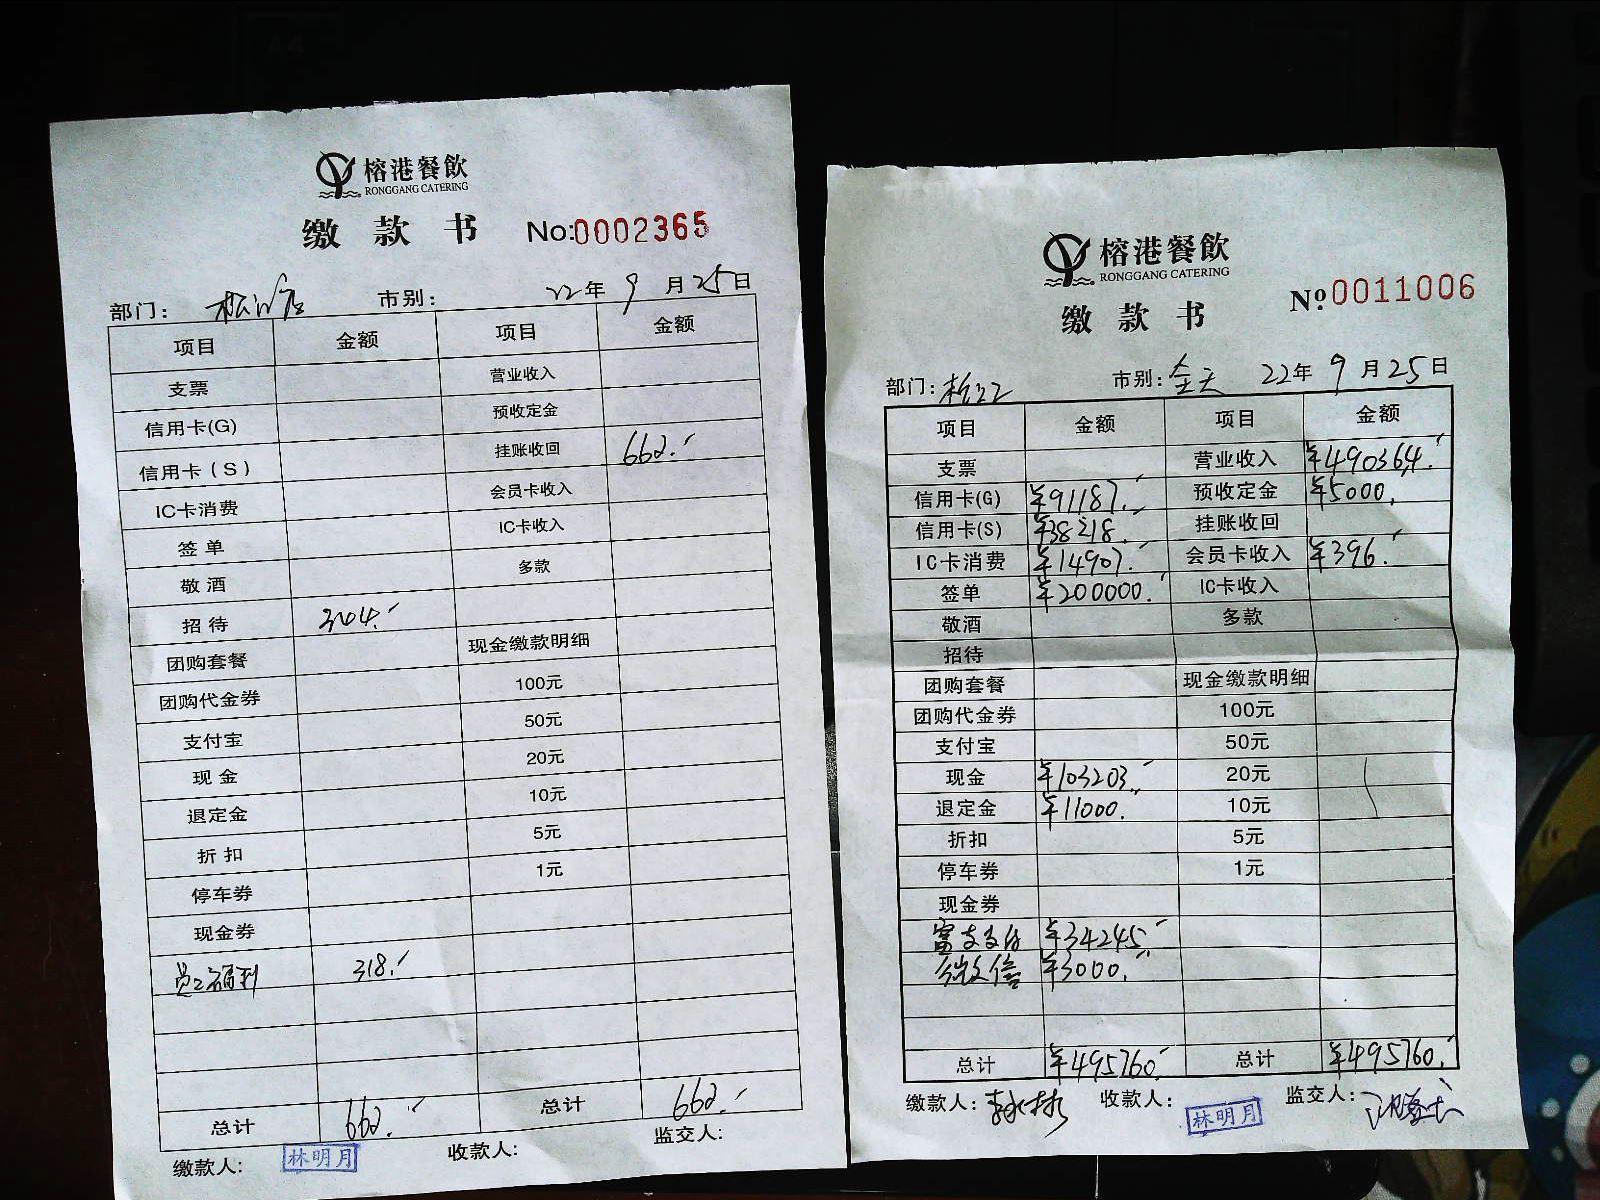 榕港餐飲
RONGGANG CATERING
缴款书 No:0002365
部门: 松江店 市别: 22年9月25日
项目 金额 项目 金额
支票 营业收入
信用卡(G) 预收定金
信用卡(S) 挂账收回 662.
IC卡消费 会员卡收入
签单 IC卡收入
敬酒 多款
招待 344.
团购套餐 现金缴款明细
团购代金券 100元
支付宝 50元
现金 20元
退定金 10元
折扣 5元
停车券 1元
现金券
员工福利 318.
总计 662. 总计 662.
缴款人: 林明月 收款人: 监交人:
榕港餐飲
RONGGANG CATERING
缴款书 No.0011006
部门: 松江 市别: 全天 22年9月25日
项目 金额 项目 金额
支票 营业收入 ¥490364.
信用卡(G) ¥91187. 预收定金 ¥5000.
信用卡(S) ¥38218. 挂账收回
IC卡消费 ¥14907. 会员卡收入 ¥396.
签单 ¥200000. IC卡收入
敬酒 多款
招待
团购套餐 现金缴款明细
团购代金券 100元
支付宝 50元
现金 ¥103203. 20元
退定金 ¥11000. 10元
折扣 5元
停车券 1元
现金券
富友支付 ¥34245.
微信 ¥3000.
总计 ¥495760. 总计 ¥495760.
缴款人: 收款人: 林明月 监交人: